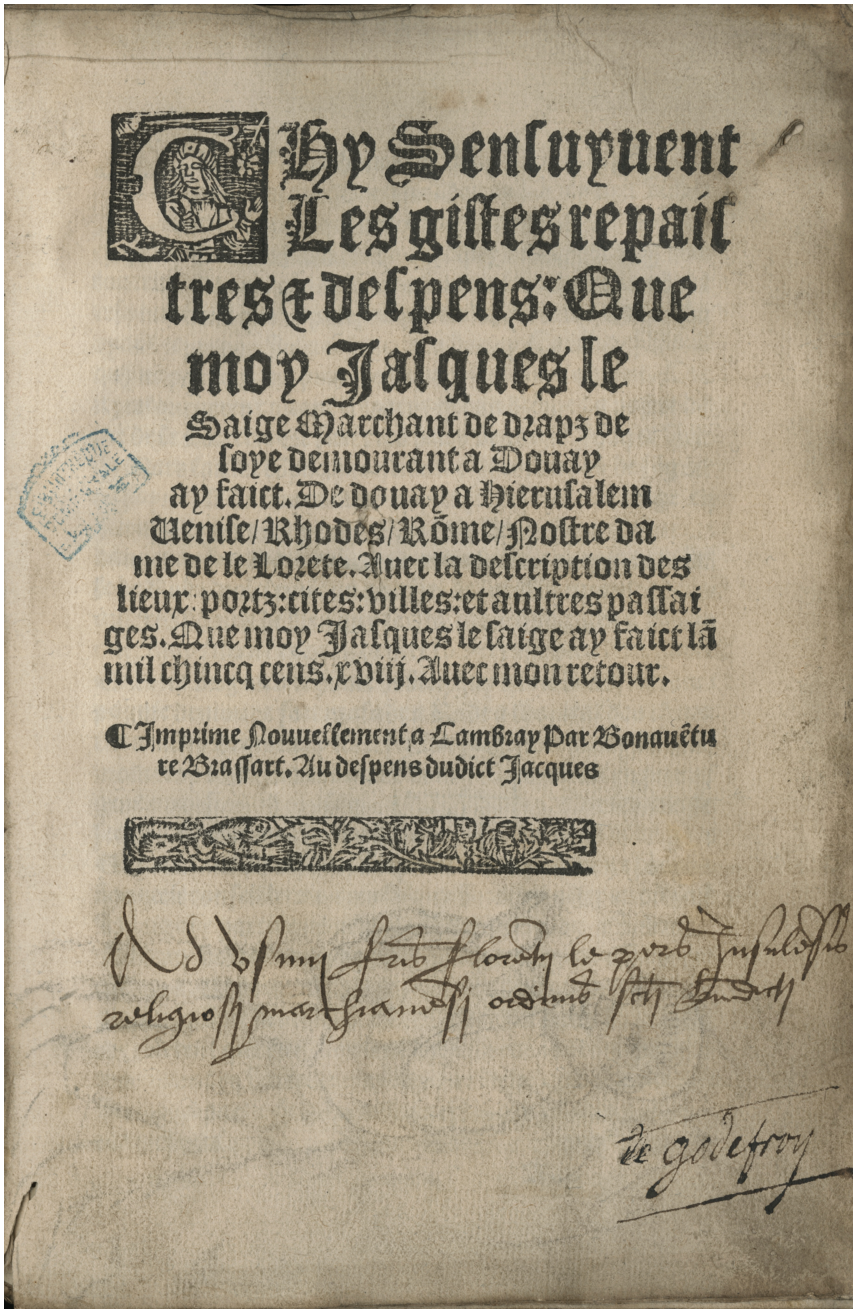 CHy Sensuyuent
Les gistes repais
tres & despens: Que
moy Jasques le
Saige Marchant de drapz de
soye demourant a Douay
ay faict. De douay a Hierusalem
Uenise/Rhodes/Rõme/Nostre da
me de le Lorete. Auec la description des
lieux: portz: cites: villes: et aultres passai
ges. Que moy Jasques le saige ay faict lã
mil chincq cens. xviij. Auec mon retour.
¶ Imprime Nouuellement a Cambray Par Bonauẽtu
re Brassart. Au despens dudict Jacques
Ad vsum fris florẽtij le pers Insulẽsis
religiosi marchianẽsis ordinis scti Bñdicti
de godefroy